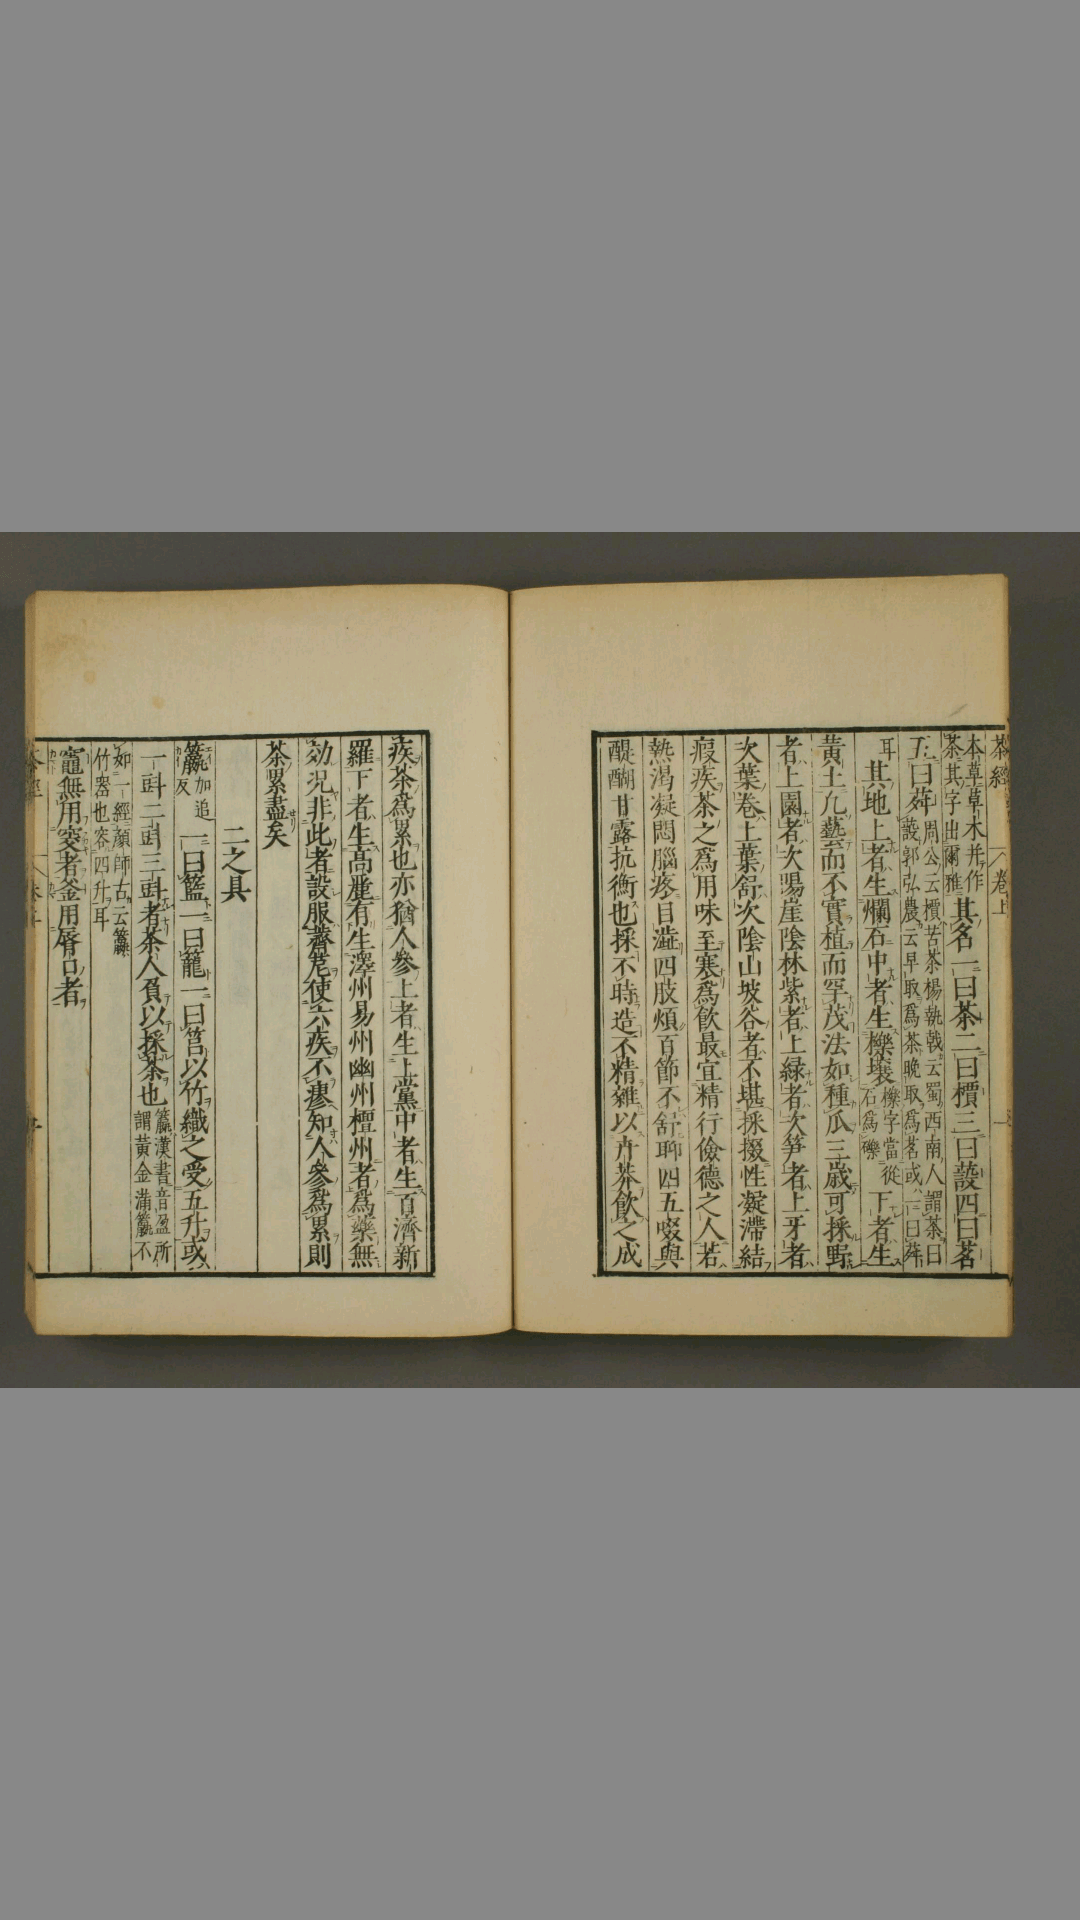 茶經 卷上
本草草木并作
茶其字出爾雅
其名一曰茶二曰檟三曰蔎四曰茗
五曰荈
周公云檟苦荼楊執戟云蜀西南人謂茶曰
蔎郭弘農云早取爲茶晚取爲茗或一曰荈
耳
其地上者生爛石中者生櫟壤
櫟字當從
石爲礫
下者生
黃土凡藝而不實植而罕茂法如種瓜三歲可採野
者上園者次陽崖陰林紫者上緑者次笋者上牙者
次葉卷上葉舒次陰山坡谷者不堪採掇性凝滯結
瘕疾茶之爲用味至寒爲飲最宜精行儉德之人若
熱渴凝悶腦疼目澁四肢煩百節不舒聊四五啜與
醍醐甘露抗衡也採不時造不精雜以卉莽飲之成
疾茶爲累也亦猶人參上者生上黨中者生百濟新
羅下者生高麗有生澤州易州幽州檀州者爲藥無
効況非此者設服薺苨使六疾不瘳知人參爲累則
茶累盡矣
二之具
籯
加追
反
一曰籃一曰籠一曰筥以竹織之受五升或
一㪷二㪷三㪷者茶人負以採茶也
籯漢書音盈所
謂黃金滿籯不
如一經顔師古云籯
竹器也容四升耳
竈無用突者釜用脣口者